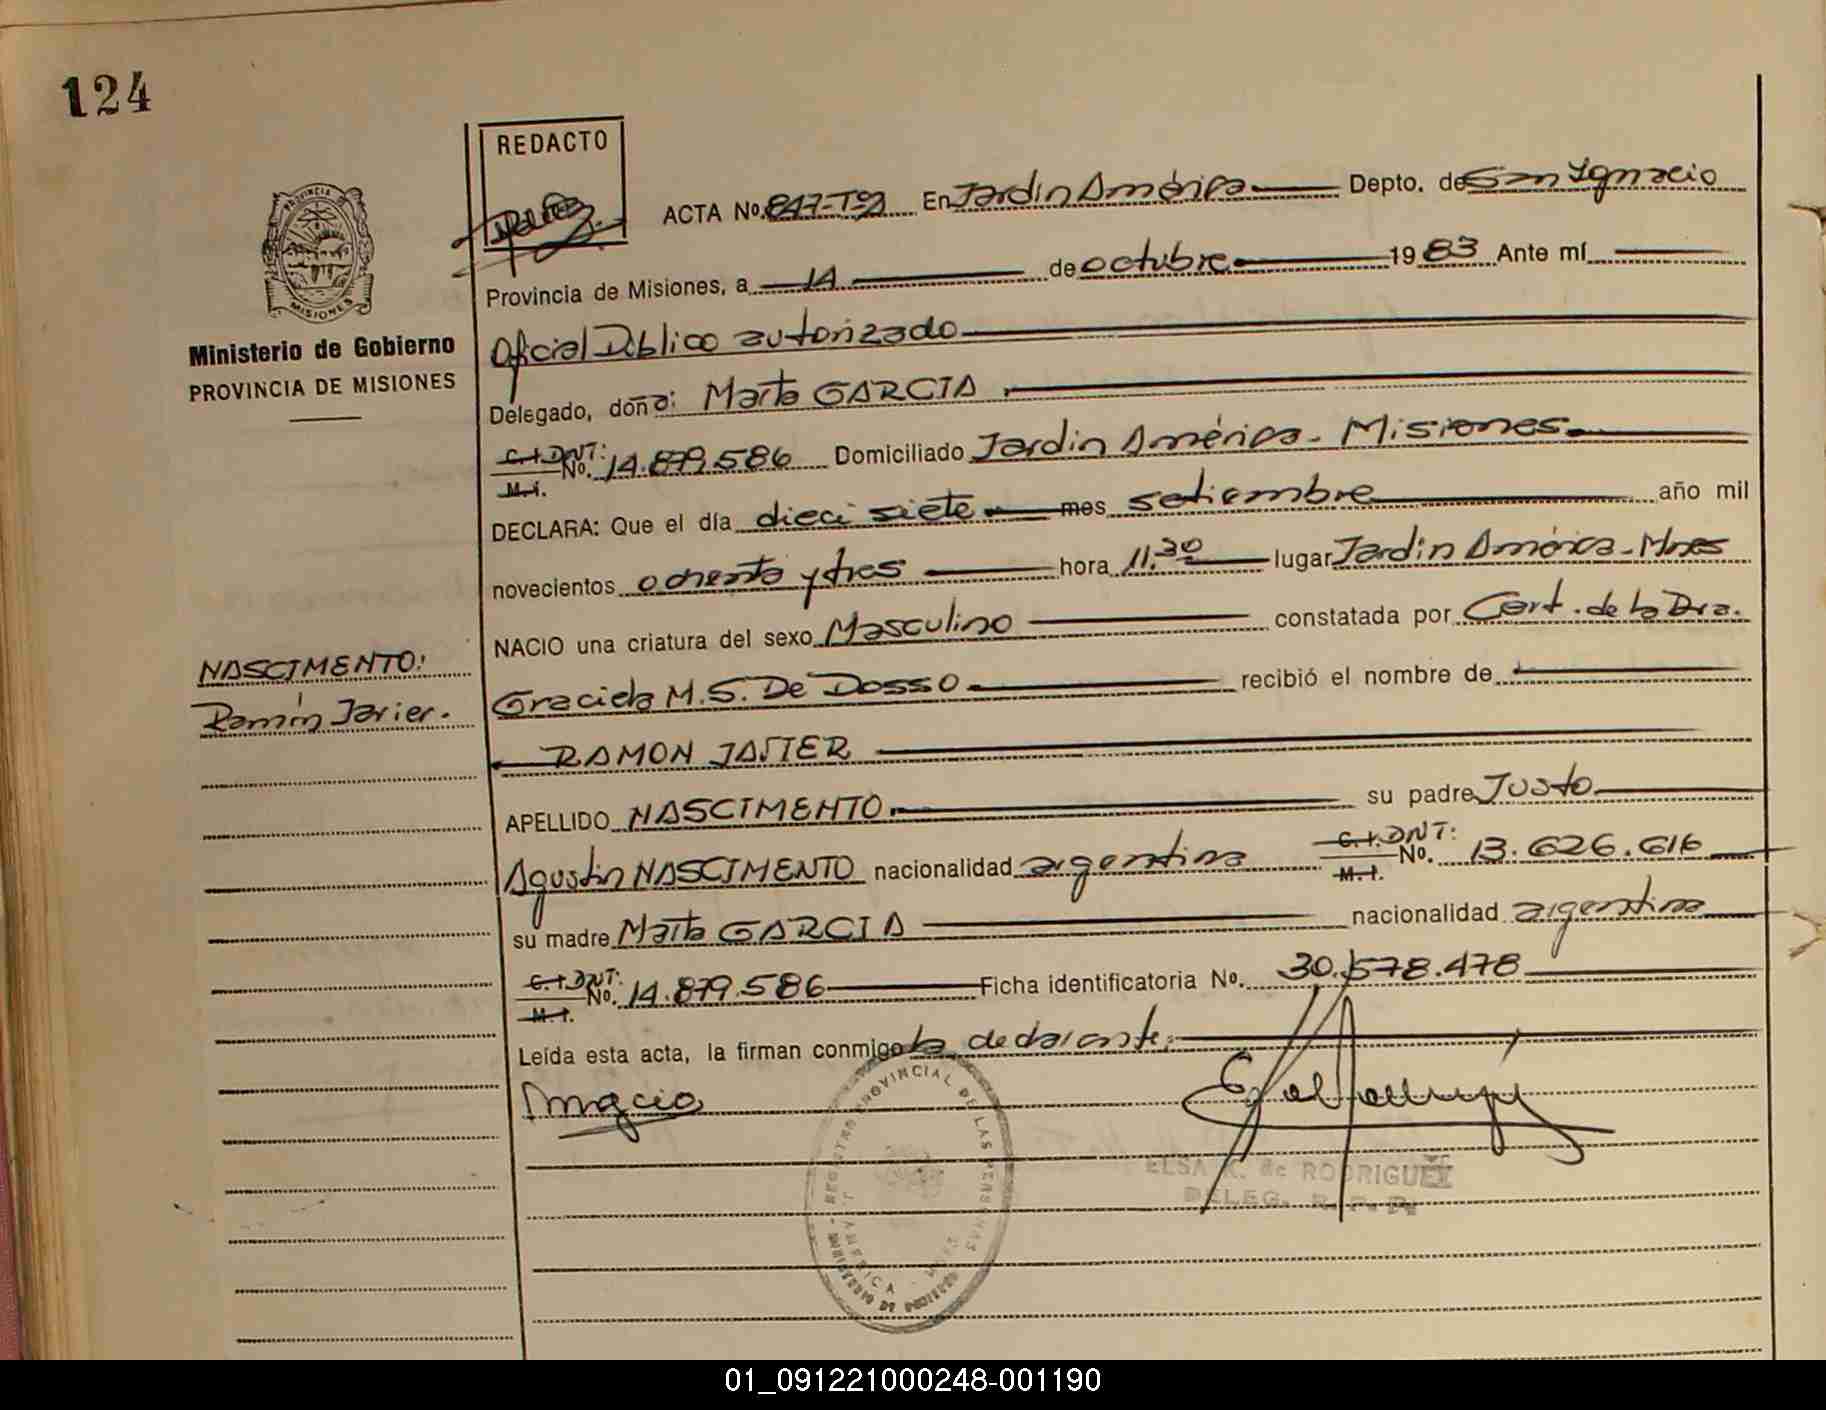 124
REDACTO
ACTA No. 847-Tº2 En Jardin América Depto. de San Ignacio
Provincia de Misiones, a 14 de octubre 1983 Ante mí
PROVINCIA
MISIONES
Ministerio de Gobierno
PROVINCIA DE MISIONES
Oficial Público autorizado
Delegado, doña: Marta GARCIA
C.I. DNI: No. 14.879.586 Domiciliado Jardin América - Misiones.
M.I.
DECLARA: Que el día dieci siete mes setiembre año mil
novecientos ochenta y tres hora 11.30 lugar Jardin América - Mnes
NACIO una criatura del sexo Masculino constatada por Cert. de la Dra.
NASCIMENTO:
Graciela M.S. De Dosso recibió el nombre de
Ramón Javier.
RAMON JAVIER
APELLIDO NASCIMENTO su padre Justo
Agustin NASCIMENTO nacionalidad argentina C.I. DNI: No. 13.626.616
M.I.
su madre Marta GARCIA nacionalidad argentina
C.I. DNI: No. 14.879.586 Ficha identificatoria No. 30.578.478
M.I.
Leída esta acta, la firman conmigo la declarante.
REGISTRO PROVINCIAL DE LAS PERSONAS
ELSA K. de RODRIGUEZ
DELEG. R. P. P.
01_091221000248-001190